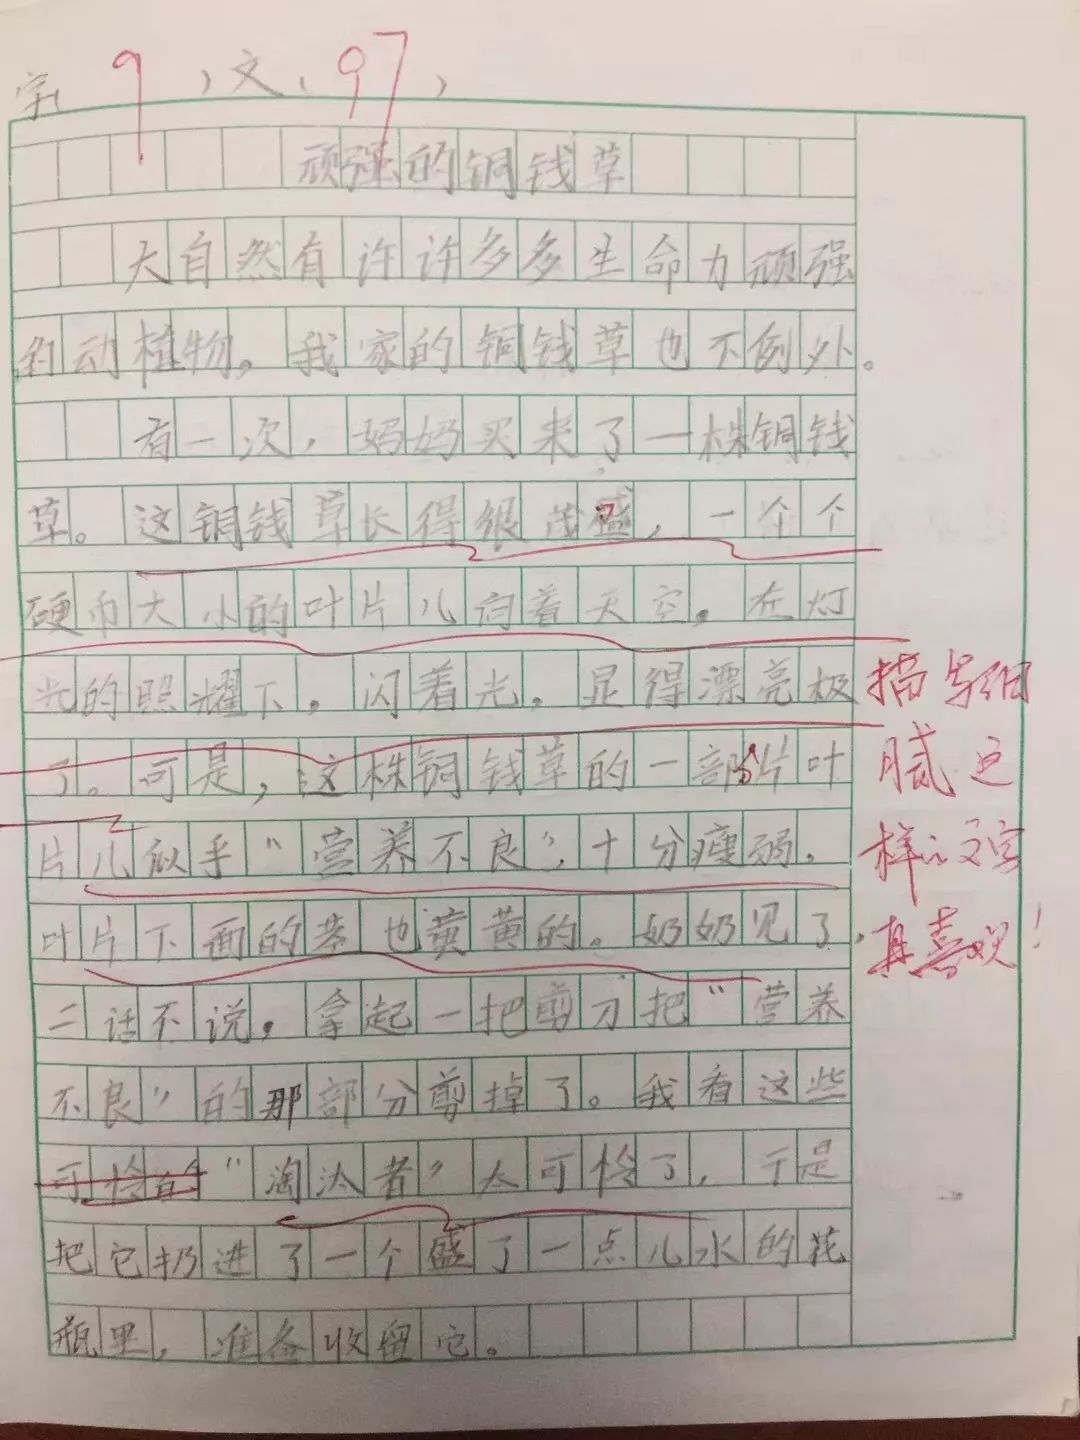 字(9)文(97)
顽强的铜钱草
大自然有许许多多生命力顽强
的动植物。我家的铜钱草也不例外。
有一次，妈妈买来了一株铜钱
草。这铜钱草长得很茂盛，一个个
硬币大小的叶片儿向着天空。在灯
光的照耀下，闪着光，显得漂亮极
了。可是，这株铜钱草的一部分叶
片儿似乎“营养不良”，十分瘦弱，
叶片下面的茎也黄黄的。奶奶见了，
二话不说，拿起一把剪刀把“营养
不良”的那部分剪掉了。我看这些
可怜的“淘汰者”太可怜了，于是
把它扔进了一个盛了一点儿水的花
瓶里，准备收留它。
描写细
腻这
样的文字
真喜欢！